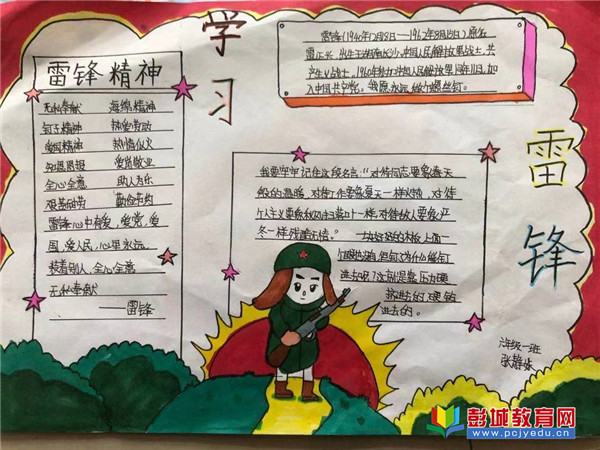 学习
雷锋
雷锋(1940年12月18日——1962年8月15日)原名
雷正兴,出生于湖南长沙,中国人民解放军战士,共
产主义战士,1960年
入中国共产党。我愿永远做个螺丝钉。
雷锋精神
无私奉献 海绵精神
钉子精神 热爱劳动
爱国精神 热情似火
知恩思报 爱岗敬业
全心全意 助人为乐
艰苦朴素 勤俭节约
雷锋心中有爱,爱党,爱
国,爱人民,心里永远
装着别人,全心全意
无私奉献
——雷锋
我要牢牢记住这段名言:“对待同志要象春天
般的温暖,对待工作要象夏天一样火热,对待
个人主义要象秋风扫落叶一样,对待敌人要象严
冬一样残酷无情。”一块好好的木板,上面
进去呢?这就是靠压力硬
挤进去的,硬钻
进去的。
六年级一班
彭城教育网
www.pcjyedu.cn